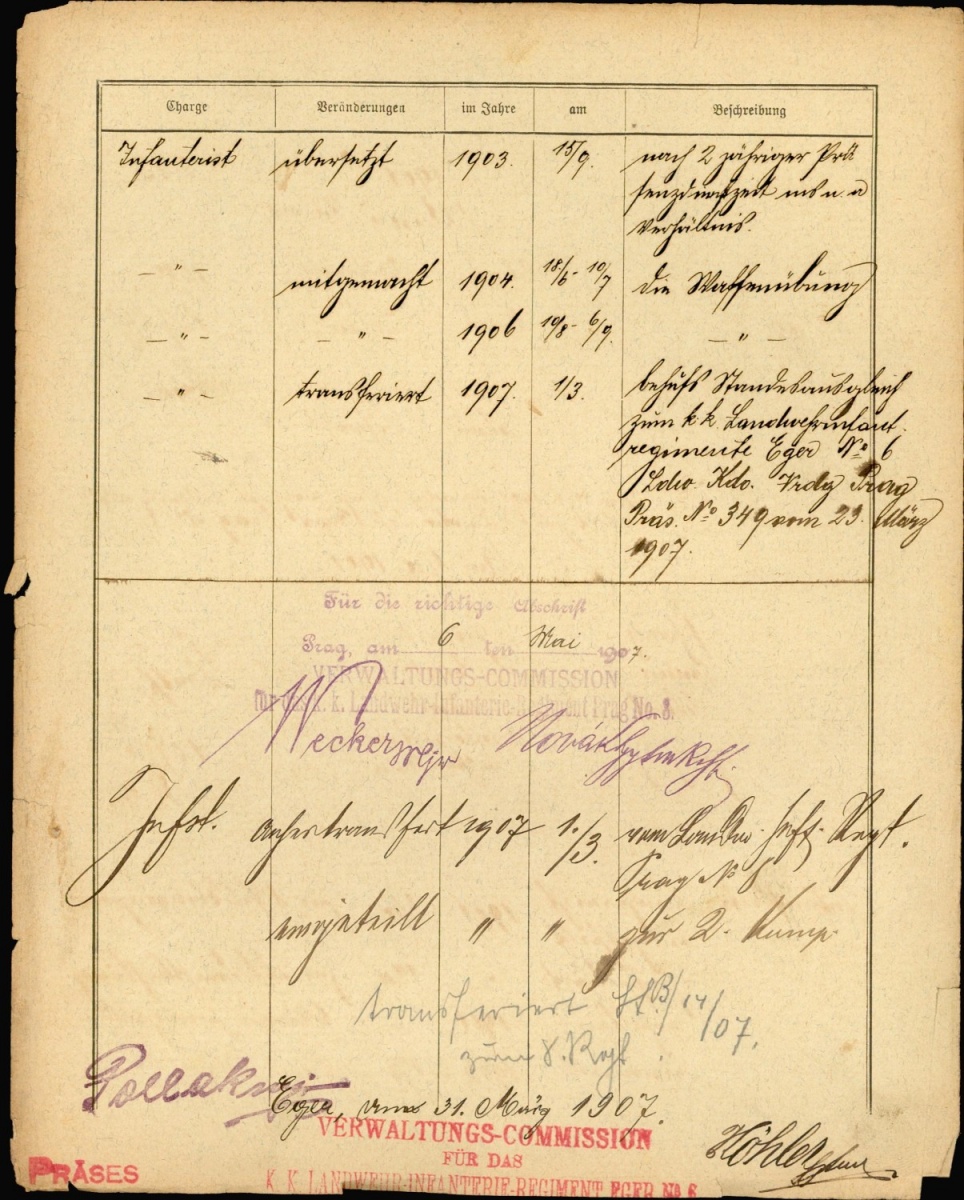 Charge Veränderungen im Jahre am Beschreibung
Infanterist übersetzt 1903. 15/9. nach 2 jähriger Prä
senzdienstzeit ins n. a
Verhältnis.
— " — mitgemacht 1904. 18/6 - 10/7 die Waffenübung
— " — — " — 1906 10/8 - 6/9. — " —
— " — transferiert 1907. 1/3. behufs Standesausgleich
zum k. k. Landwehrinfant.
regimente Eger No 6
Ldw. Kdo. Vrdg Prag
Präs. No 349 vom 23. März
1907.
Für die richtige Abschrift
Prag, am 6 ten Mai 1907.
VERWALTUNGS-COMMISSION
für das k. k. Landwehr-Infanterie-Regiment Prag No. 8.
Wecker Mjr Novák
Infst. anhertransfert 1907 1./3. vom Landw. Inft. Regt.
Prag No 8
eingeteilt " " zur 2. Komp.
transferiert B/14/07.
zum 8. Regt.
Pollak
Eger, am 31. März 1907.
VERWALTUNGS-COMMISSION
FÜR DAS
Köhler
PRÄSES
K. K. LANDWEHR-INFANTERIE-REGIMENT EGER No 6